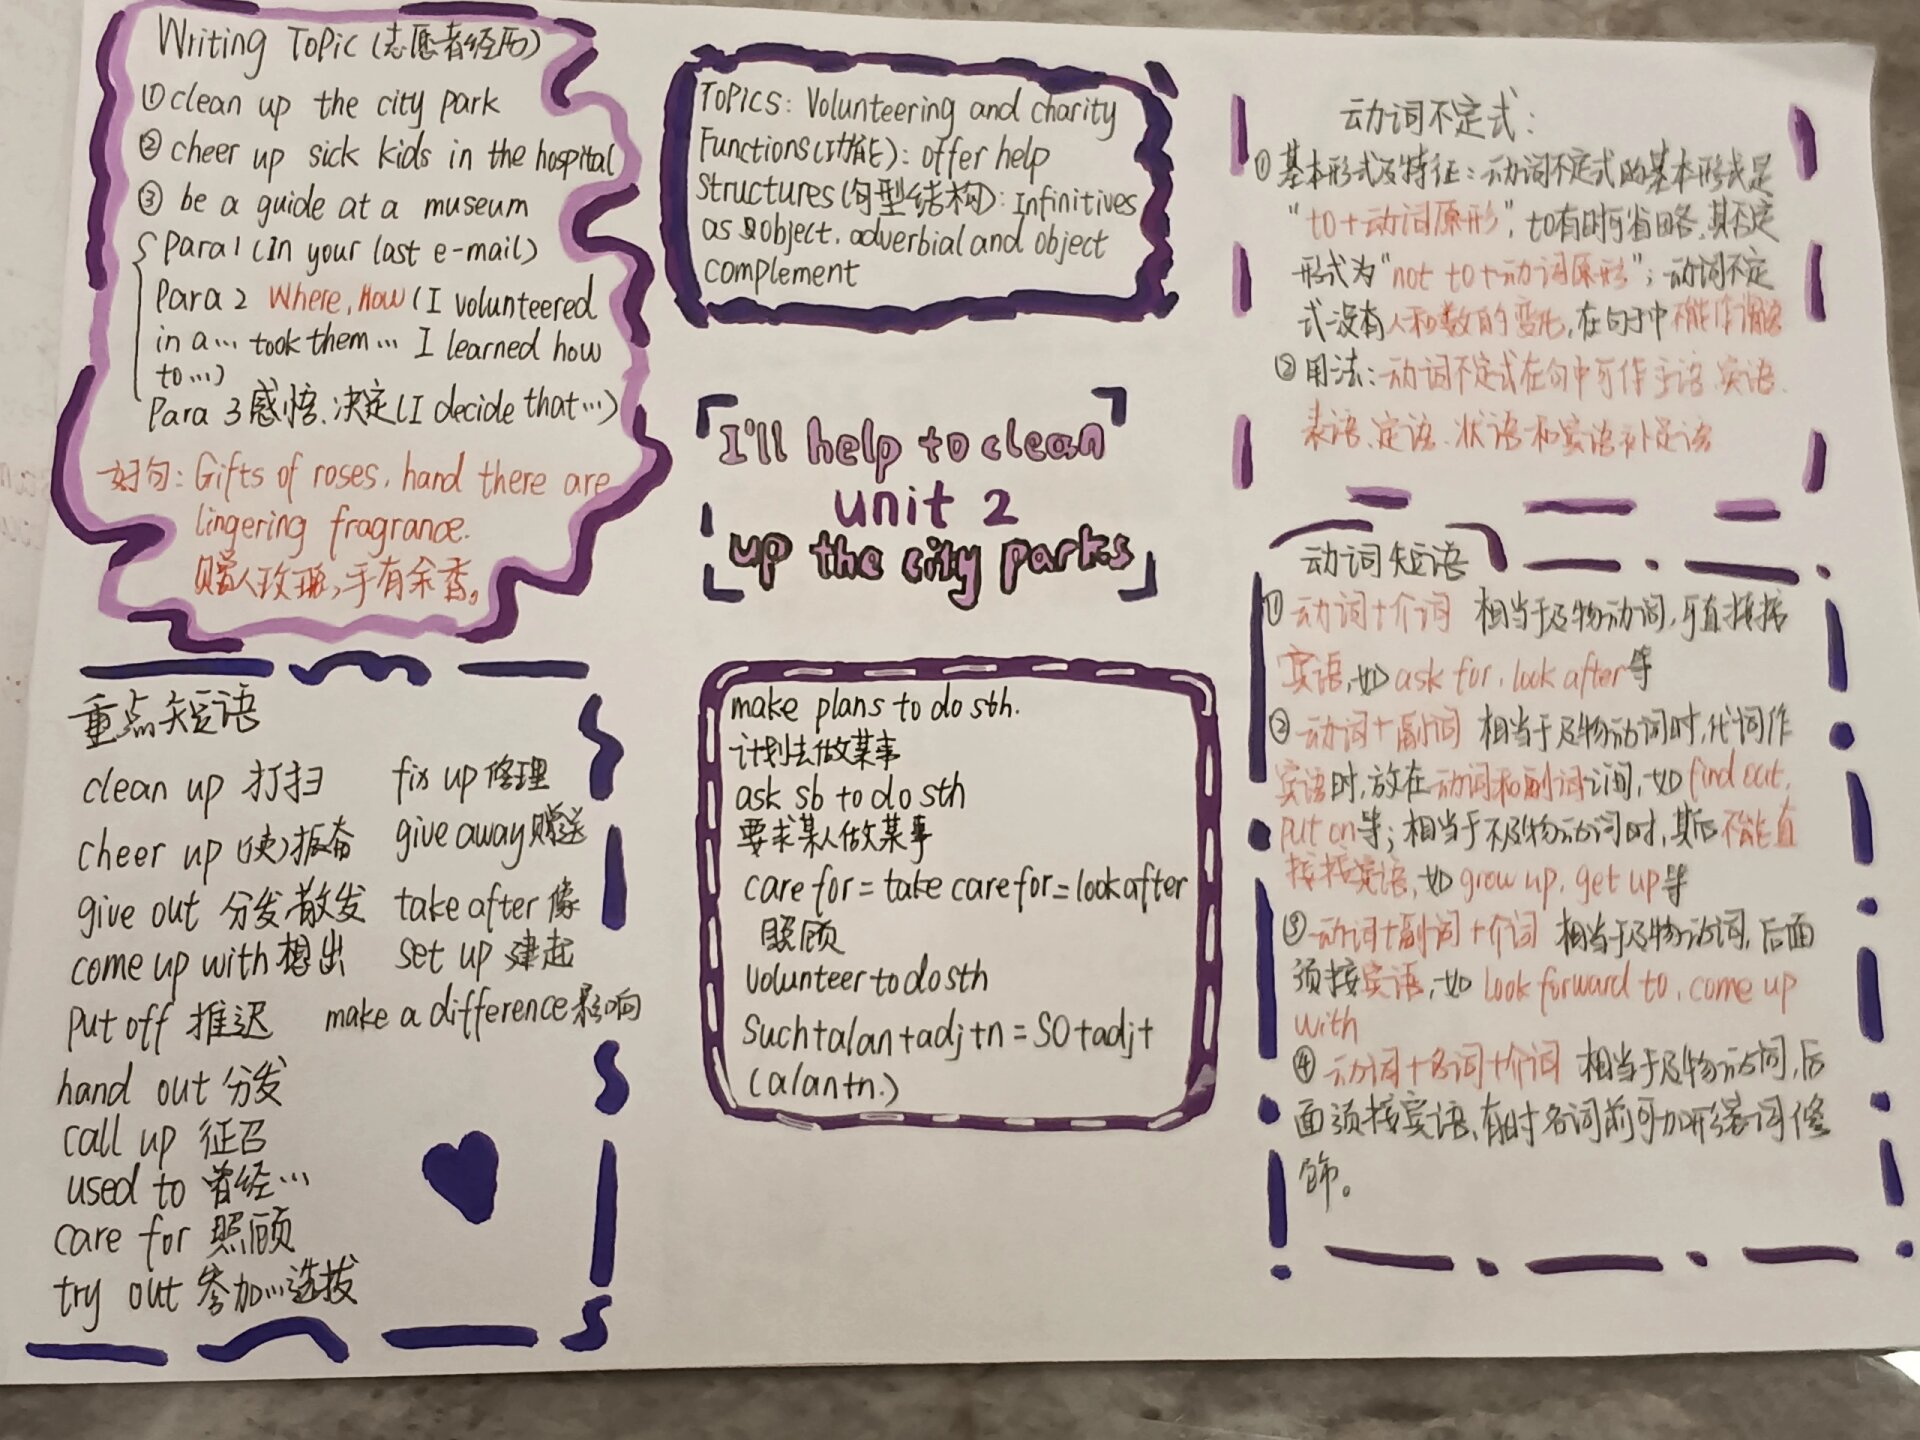 Writing Topic (志愿者经历)
①clean up the city park
② cheer up sick kids in the hospital
③ be a guide at a museum
Para1 (In your last e-mail)
Para 2 Where, How (I volunteered
in a… took them… I learned how
to…)
Para 3 感悟、决定(I decide that…)
好句: Gifts of roses, hand there are
lingering fragrance.
赠人玫瑰,手有余香。
TOPICS: Volunteering and charity
Functions(功能): offer help
Structures(句型结构): Infinitives
as object, adverbial and object
complement
动词不定式:
① 基本形式及特征:动词不定式的基本形式是
"to+动词原形",to有时可省略,其否定
形式为"not to+动词原形";动词不定
式没有人和数的变化,在句子中不能作谓语
② 用法:动词不定式在句中可作主语、宾语、
表语、定语、状语和宾语补足语
I'll help to clean
unit 2
up the city parks
重点短语
clean up 打扫 fix up 修理
cheer up (使)振奋 give away 赠送
give out 分发 散发 take after 像
come up with 想出 set up 建起
put off 推迟 make a difference 影响
hand out 分发
call up 征召
used to 曾经…
care for 照顾
try out 参加…选拔
make plans to do sth.
计划去做某事
ask sb to do sth
要求某人做某事
care for = take care for = look after
照顾
volunteer to do sth
Such+a/an+adj+n = SO+adj+
(a/an+n.)
动词短语
① 动词+介词 相当于及物动词,可直接接
宾语,如 ask for, look after等
② 动词+副词 相当于及物动词时,代词作
宾语时,放在动词和副词之间,如 find out,
put on等;相当于不及物动词时,其后不能直
接接宾语,如 grow up, get up等
③ 动词+副词+介词 相当于及物动词,后面
须接宾语,如 look forward to, come up
with
④ 动词+名词+介词 相当于及物动词,后
面须接宾语,有时名词前可加形容词修
饰。